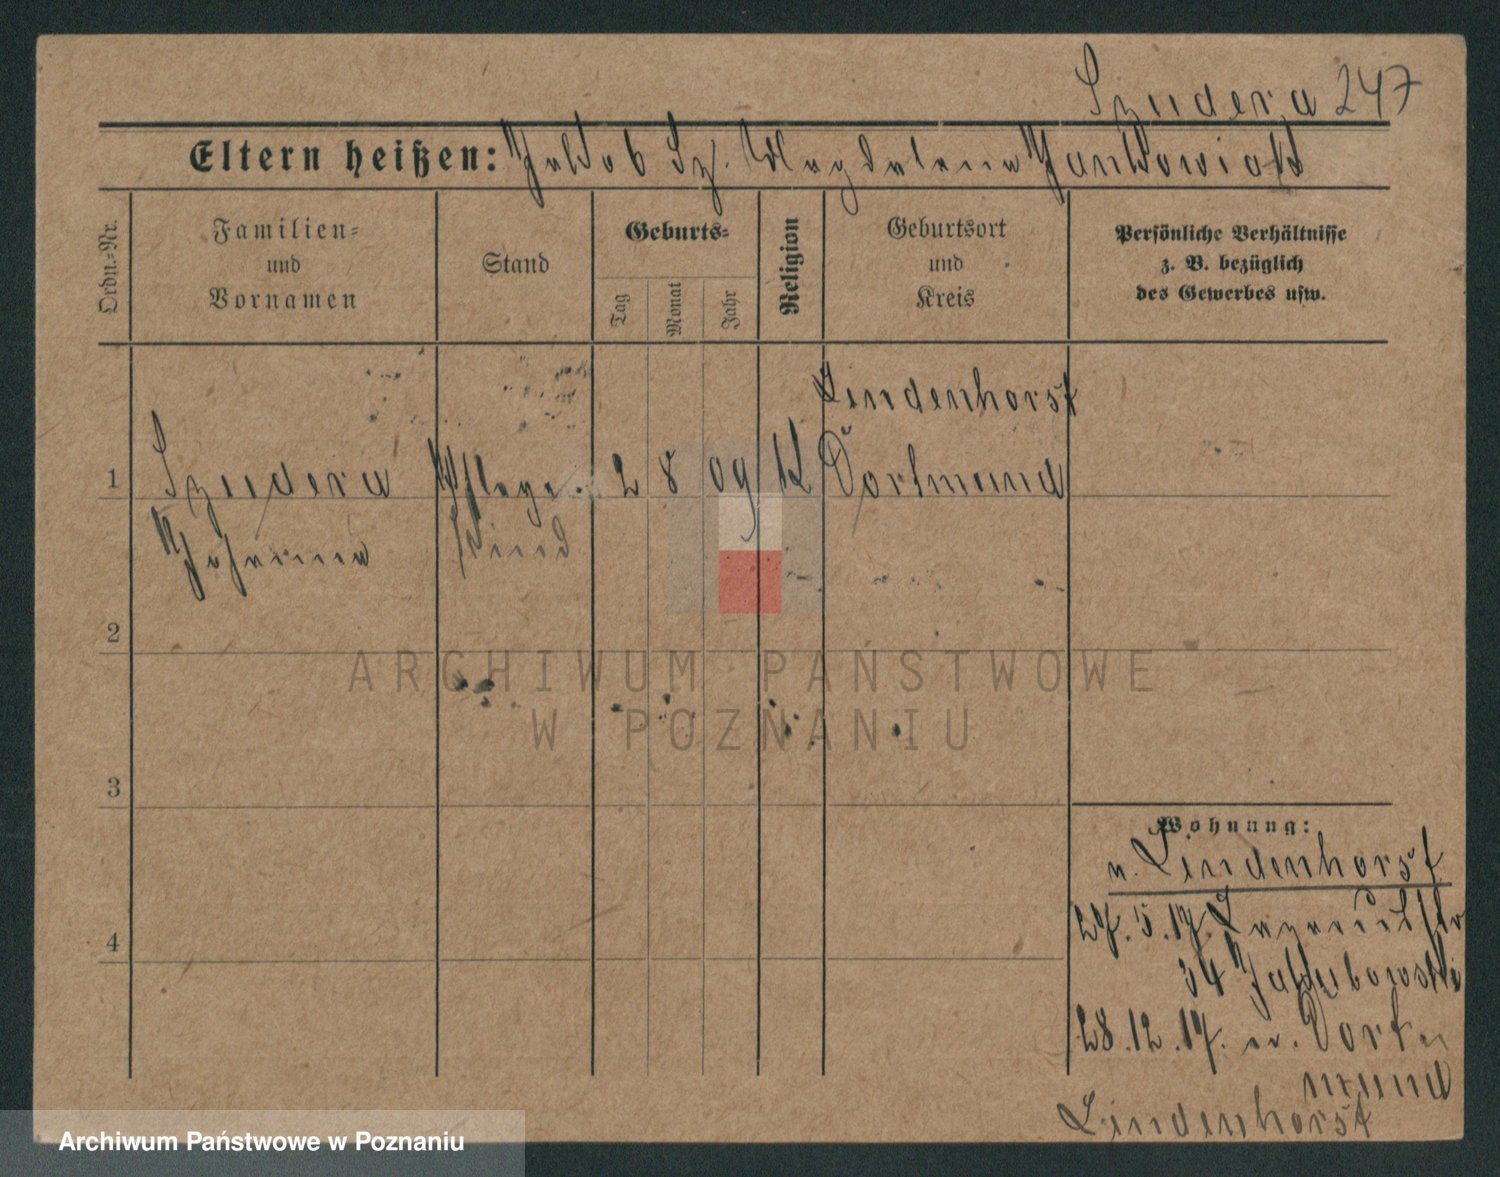 Szudera 247
Eltern heißen: Jakob Sz. Magdalena Jankowiak
Ordn.-Nr.
Familien-
und
Vornamen
Stand
Geburts-
Tag
Monat
Jahr
Religion
Geburtsort
und
Kreis
Persönliche Verhältnisse
z. B. bezüglich
des Gewerbes usw.
Lindenhorst
1 Szudera Pflege- 2 8 09 K Dortmund
Johanna kind
2
3
4
Wohnung:
v. Lindenhorst
27.5.17.
34 Jakubowski
28.12.17. n. Dort-
mund
Lindenhorst
ARCHIWUM PAŃSTWOWE
W POZNANIU
Archiwum Państwowe w Poznaniu